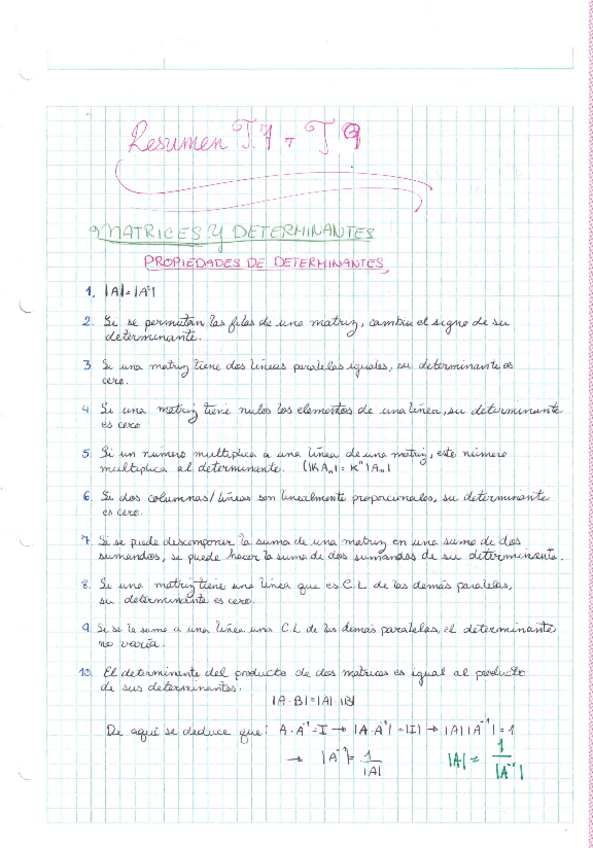 Resumen T.7 - T 9
MATRICES Y DETERMINANTES
PROPIEDADES DE DETERMINANTES
1. |A|=|Aᵗ|
2. Si se permutan las filas de una matriz, cambia el signo de su
determinante.
3 Si una matriz tiene dos líneas paralelas iguales, su determinante es
cero.
4 Si una matriz tiene nulos los elementos de una línea, su determinante
es cero
5 Si un número multiplica a una línea de una matriz, este número
multiplica al determinante. (|KAₙ| = Kⁿ |Aₙ|
6. Si dos columnas/líneas son linealmente proporcionales, su determinante
es cero.
7. Si se puede descomponer la suma de una matriz en una suma de dos
sumandos, se puede hacer la suma de dos sumandos de su determinante.
8. Si una matriz tiene una línea que es C.L de las demás paralelas,
su determinante es cero.
9 Si se le suma a una línea una C.L de las demás paralelas, el determinante
no varía.
10. El determinante del producto de dos matrices es igual al producto
de sus determinantes.
|A·B|=|A|·|B|
De aquí se deduce que: A·A⁻¹=I → |A·A⁻¹|=|I| → |A||A⁻¹|=1
→ |A⁻¹|= 1/|A| |A| = 1/|A⁻¹|